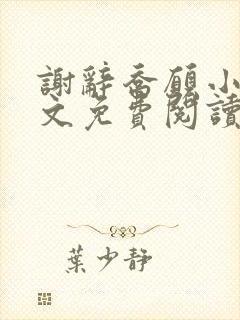 謝辭喬願小
文免費閱讀
葉少靜